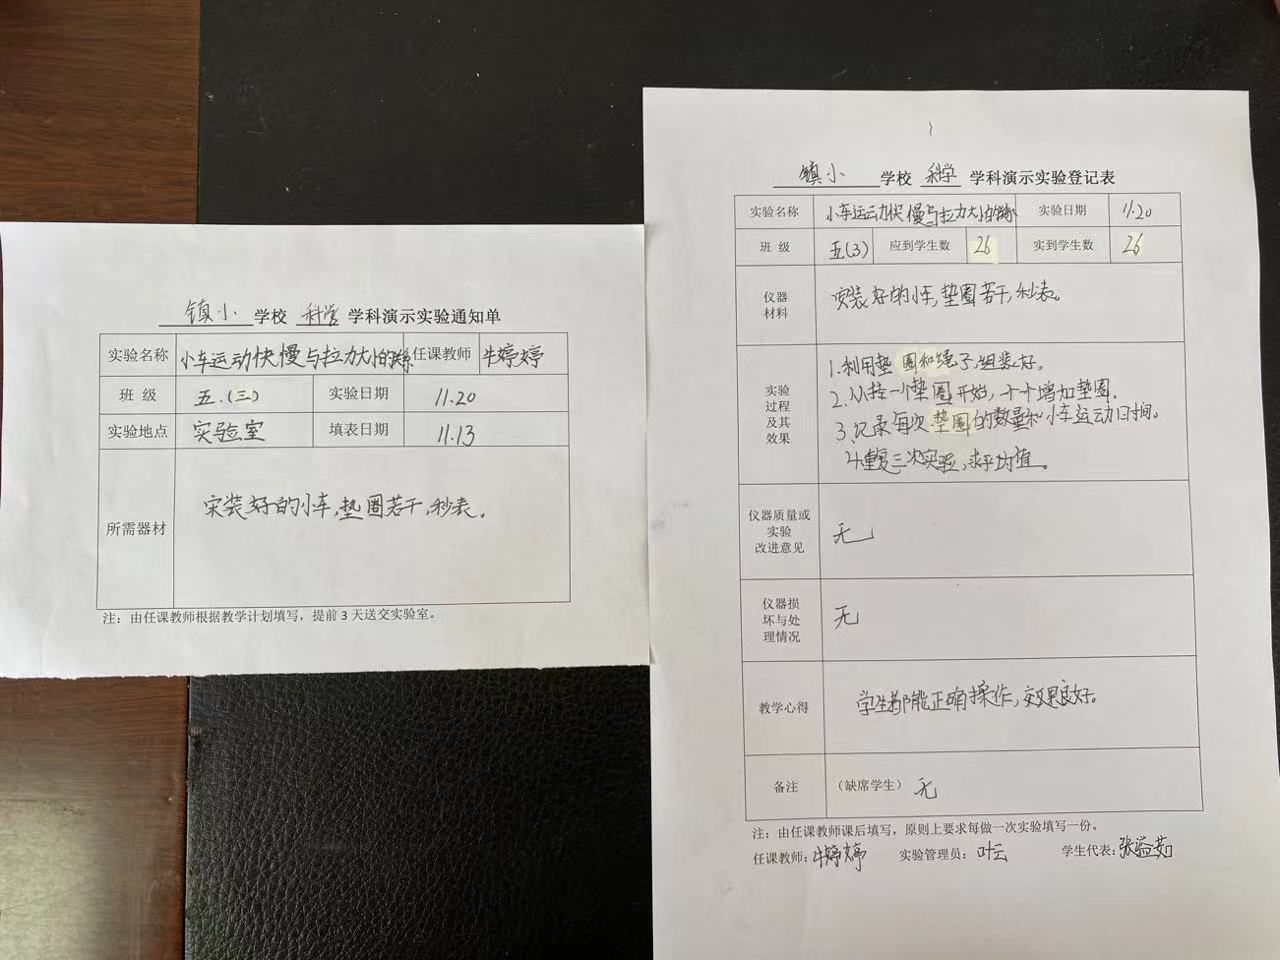 镇小 学校 科学 学科演示实验通知单
实验名称 小车运动快慢与拉力大小的关系 任课教师 牛婷婷
班 级 五.(三) 实验日期 11.20
实验地点 实验室 填表日期 11.13
所需器材 安装好的小车,垫圈若干,秒表。
注：由任课教师根据教学计划填写，提前 3 天送交实验室。
镇小 学校 科学 学科演示实验登记表
实验名称 小车运动快慢与拉力大小的关系 实验日期 11.20
班 级 五(3) 应到学生数 26 实到学生数 26
仪器
材料
安装好的小车,垫圈若干,秒表。
实验
过程
及其
效果
1.利用垫圈和绳子,组装好。
2.从挂一个垫圈开始,个个增加垫圈.
3.记录每次垫圈的数量和小车运动时间。
4.重复三次实验,求平均值。
仪器质量或
实验
改进意见
无
仪器损
坏与处
理情况
无
教学心得 学生都能正确操作,效果良好。
备注 （缺席学生） 无
注：由任课教师课后填写，原则上要求每做一次实验填写一份。
任课教师：牛婷婷 实验管理员：叶云 学生代表：张溢茹